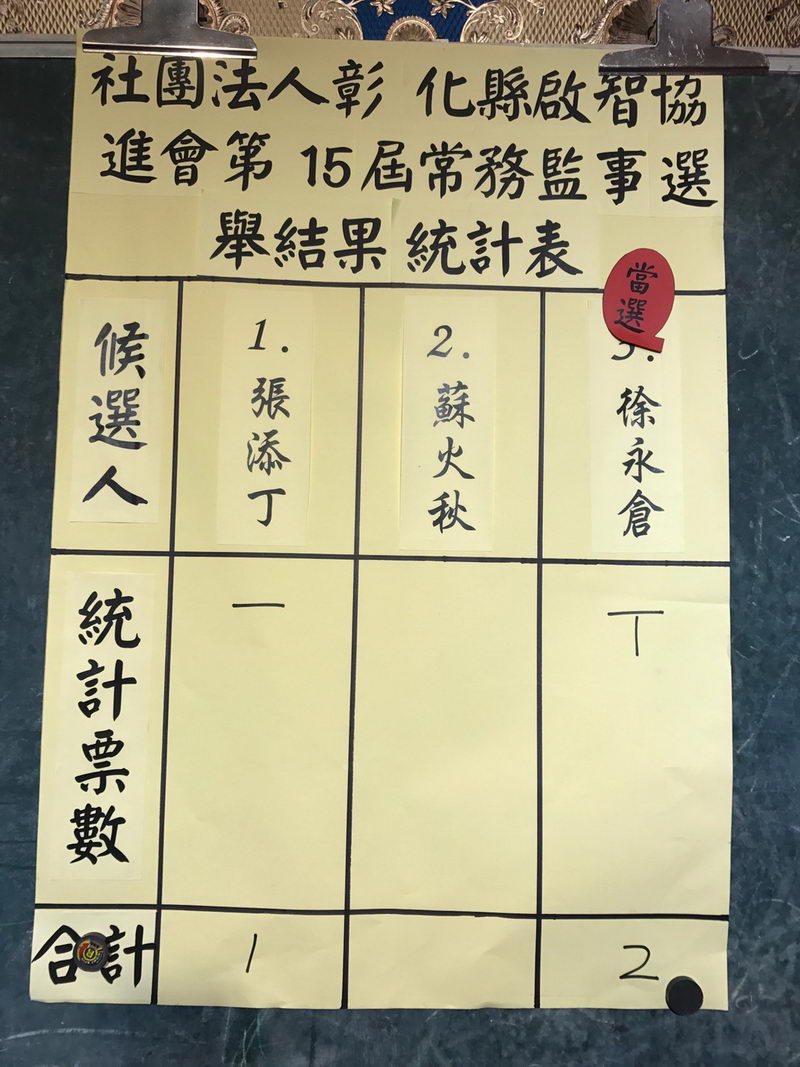 社團法人彰化縣啟智協
進會第15屆常務監事選
舉結果統計表
當選
候選人
1.張添丁
2.蘇火秋
3.徐永倉
統計票數
一
丅
合計
1
2